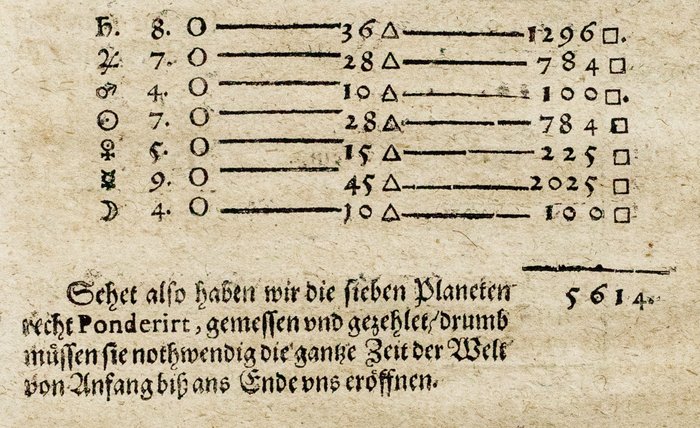 ♄. 8. O 36 △ 1296 □.
♃ 7. O 28 △ 784 □
♂ 4. O 10 △ 100 □.
☉ 7. O 28 △ 784 □
♀ 5. O 15 △ 225 □
☿ 9. O 45 △ 2025 □
☽ 4. O 10 △ 100 □
5614.
Sehet alſo haben wir die ſieben Planeten
recht Ponderirt, gemeſſen vnd gezehlet/ drumb
müſſen ſie nothwendig die gantze Zeit der Welt
von Anfang biß ans Ende vns eröffnen.